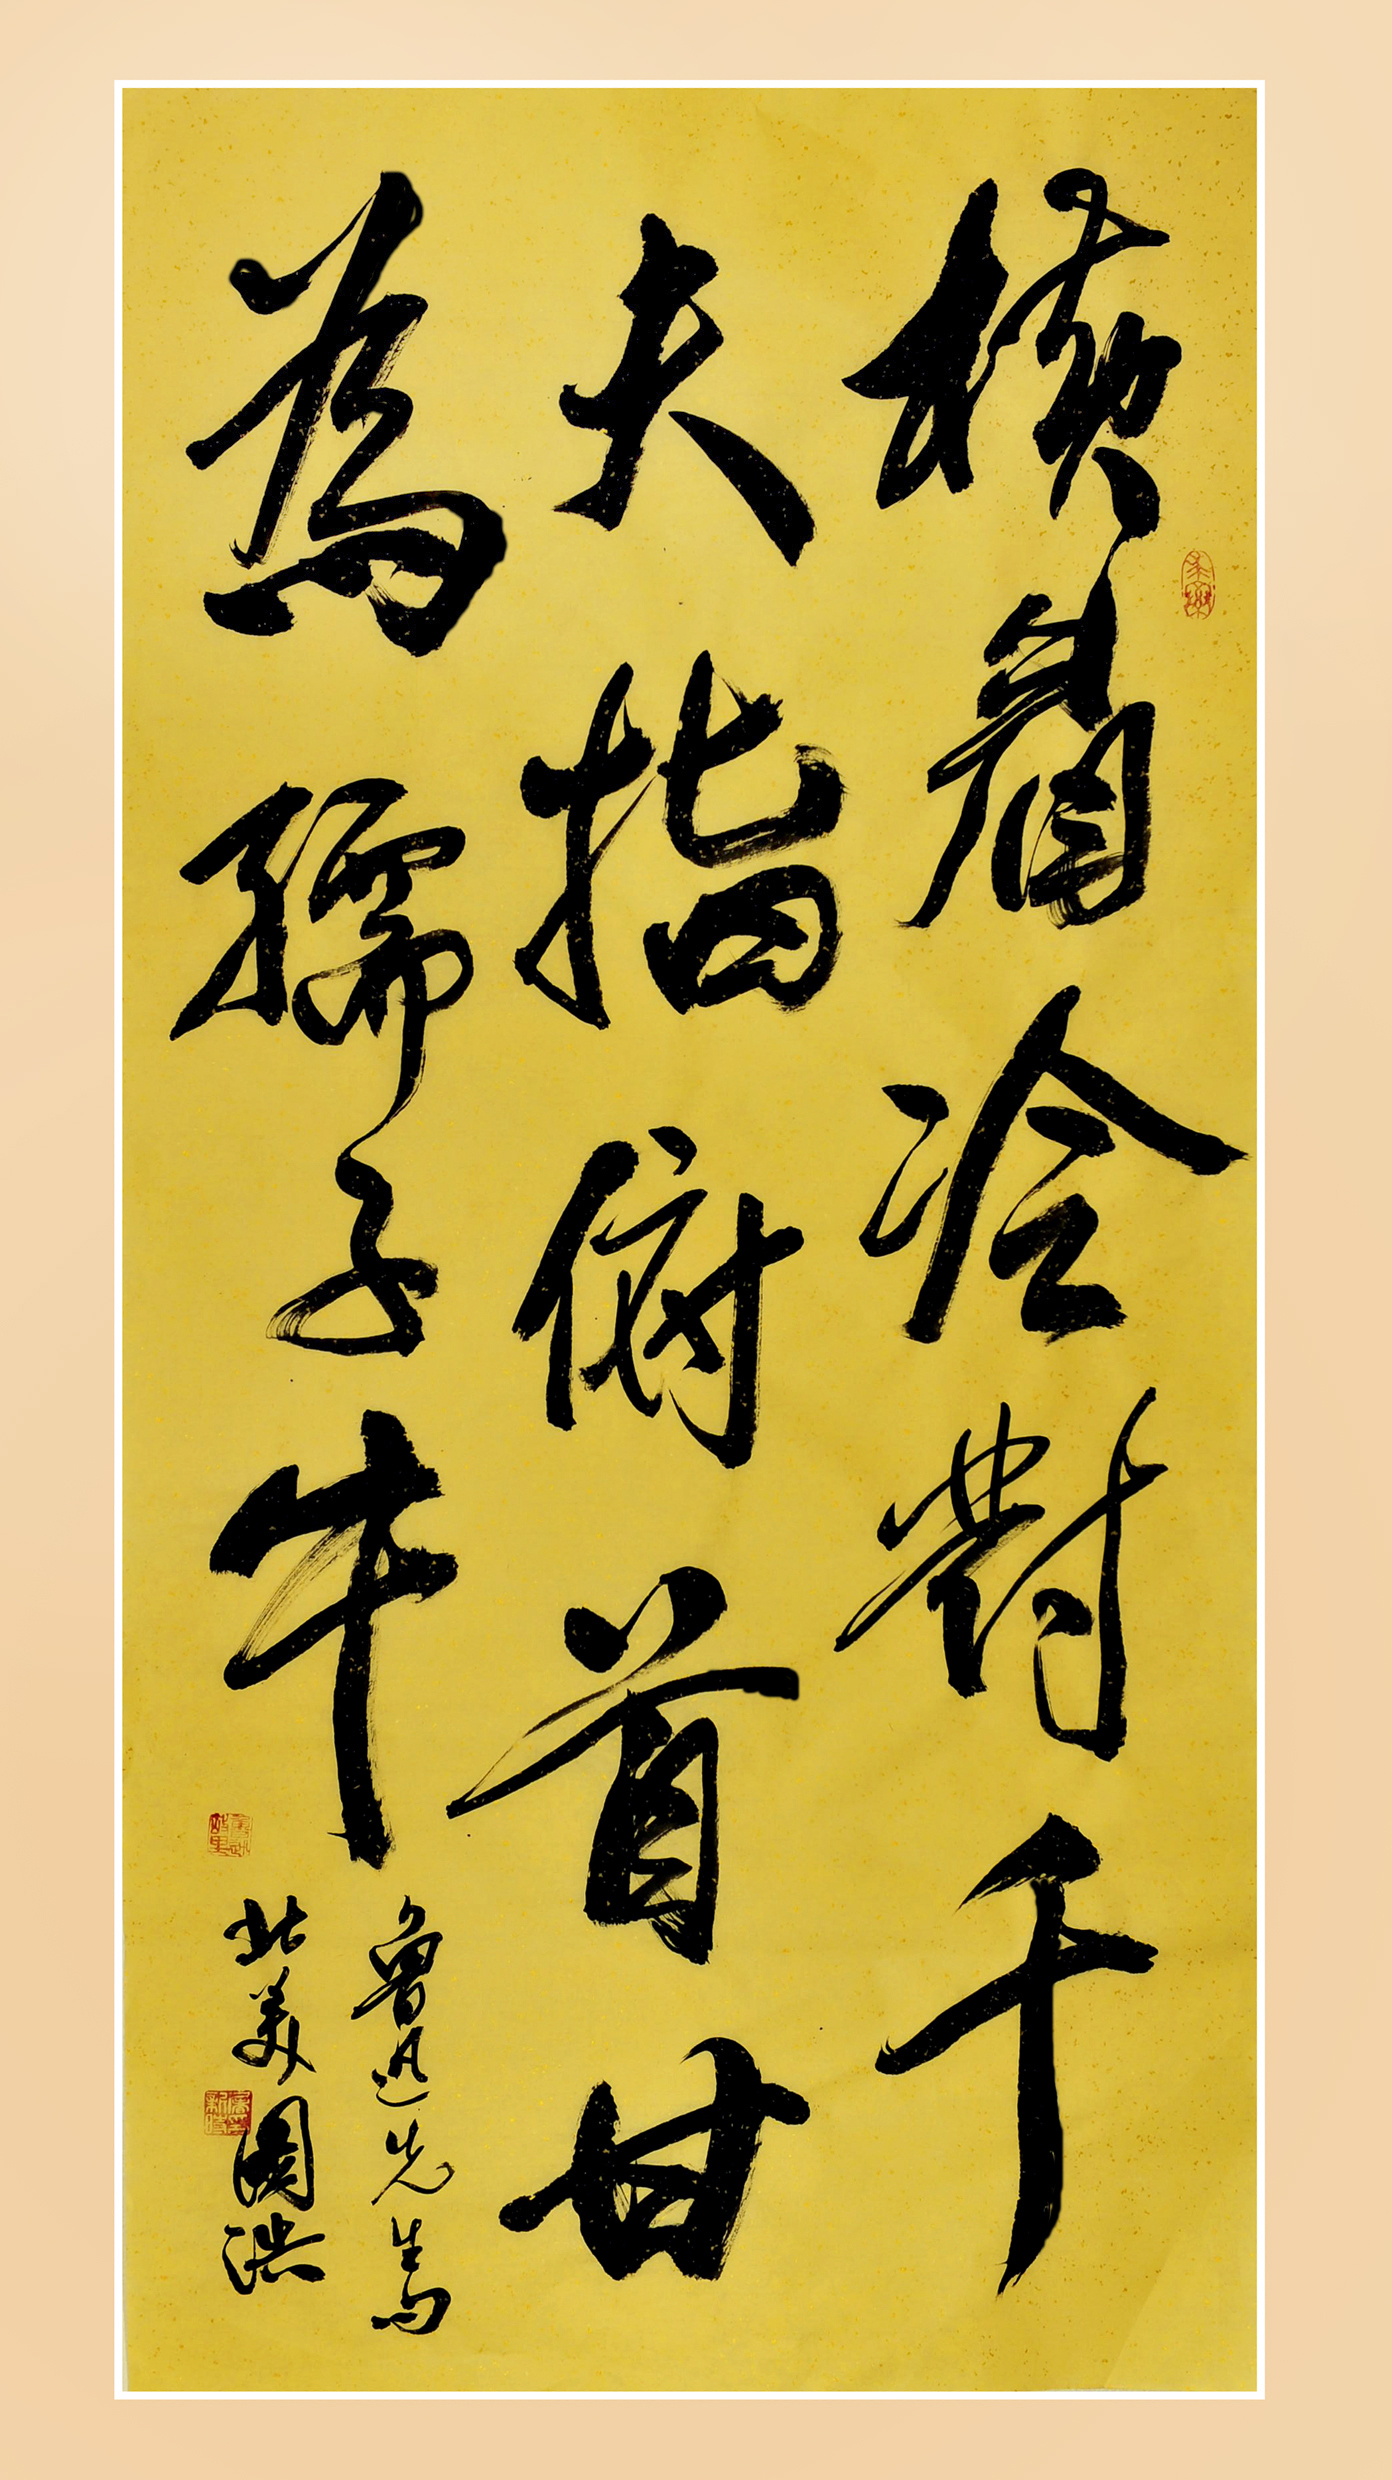 橫眉冷對千
夫指俯首甘
為孺子牛
魯迅先生句
北美國洪